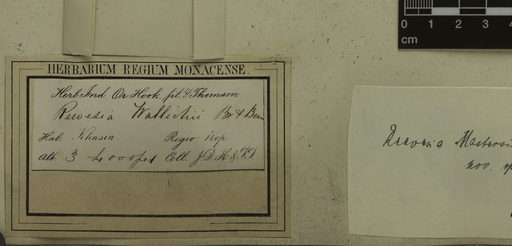 0 1 2 3 4
cm
HERBARIUM REGIUM MONACENSE.
Herb. Ind. Or. Hook. fil. & Thomson.
Reevesia Wallichii Br
Hab. Khasia Regio trop.
alt. 3 Coll. J.D.H. & T.T.
Reevesia Mastersi
nov. sp